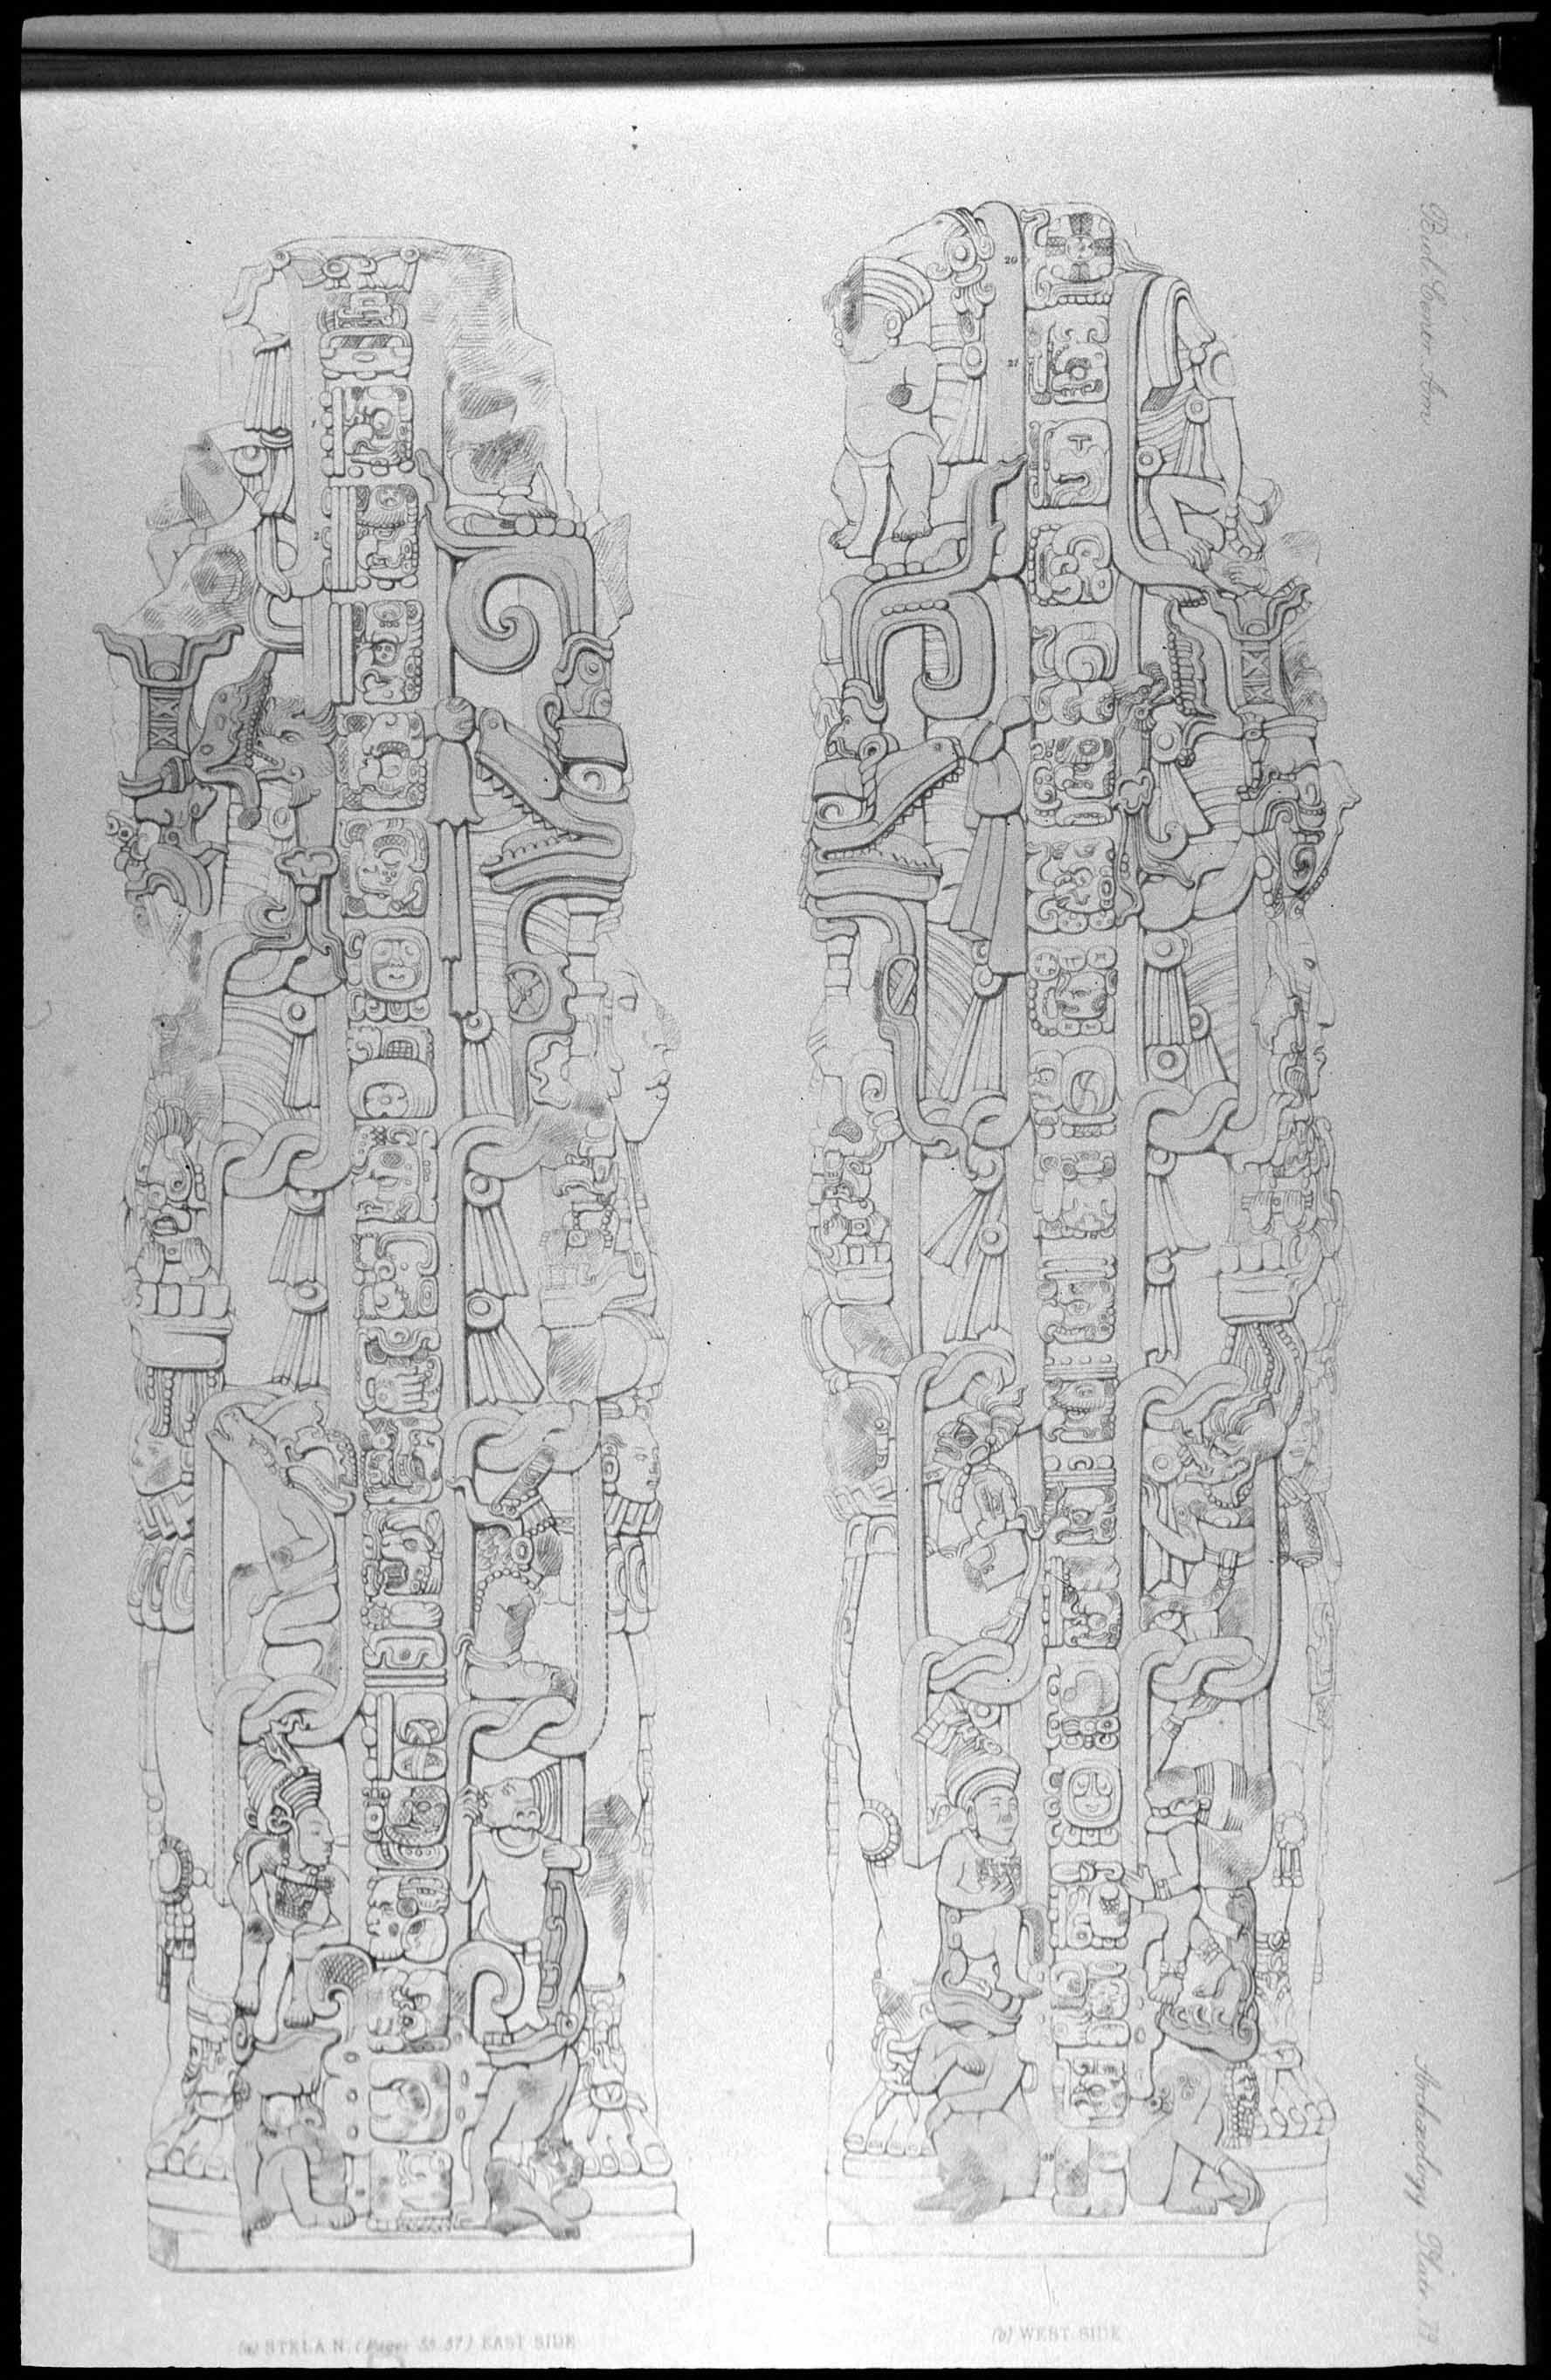 Biol. Centr. Am.
Archæology, Plate 79
20
21
1
2
(a) STELA N. (Pages 55-57) EAST SIDE
(b) WEST SIDE